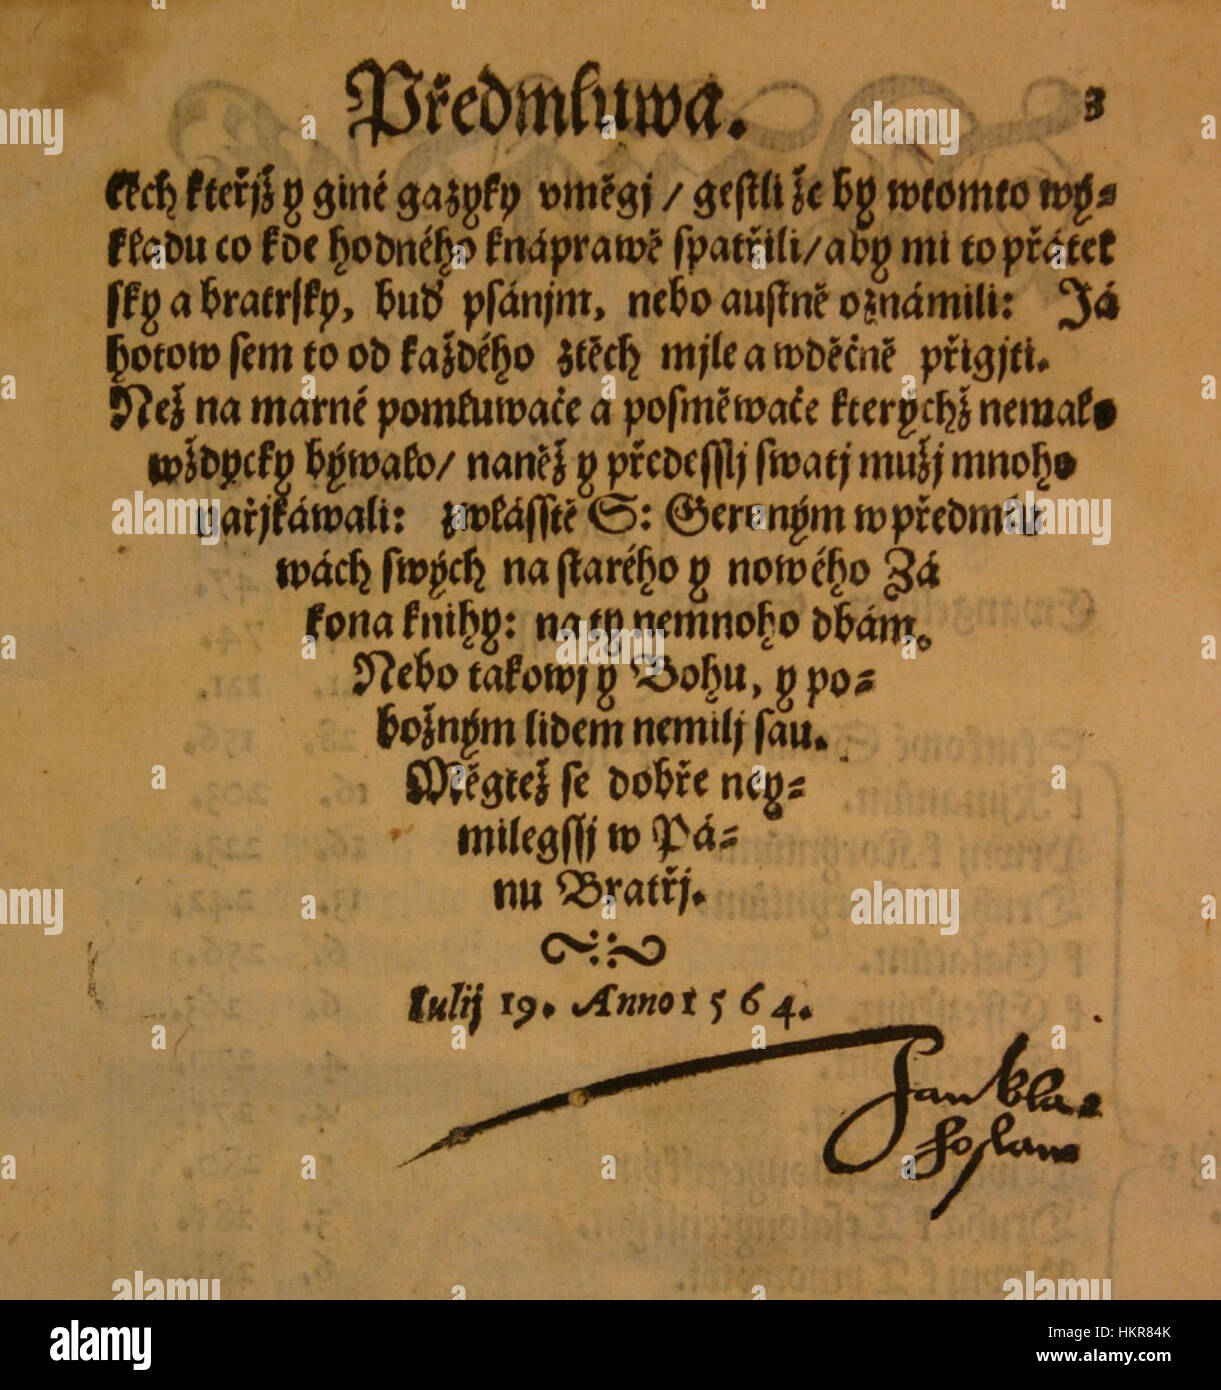 Předmluwa. 3
těch kteřjž y giné gazyky vměgj / gestli že by wtomto wý=
kładu co kde hodného knáprawě spatřili / aby mi to přátel
sky a bratrsky, buď psánjm, nebo austně oznámili: Já
hotow sem to od každého ztěch mjle a wděčně přigjti.
Než na marné pomłuwače a posměwače kterychž nemało
wždycky býwało / naněž y předesslj swatj mužj mnoho
nařjkáwali: zwłásstě S: Geroným w předmłu
wách swých na starého y nowého Zá
kona knihy: na ty nemnoho dbám.
Nebo takowj y Bohu, y po=
božným lidem nemilj sau.
Měgtež se dobře ney=
milegssj w Pá=
nu Bratřj.
Iulij 19. Anno 1564.
Jan Bla=
hoslaw
alamy
Image ID: HKR84K
www.alamy.com